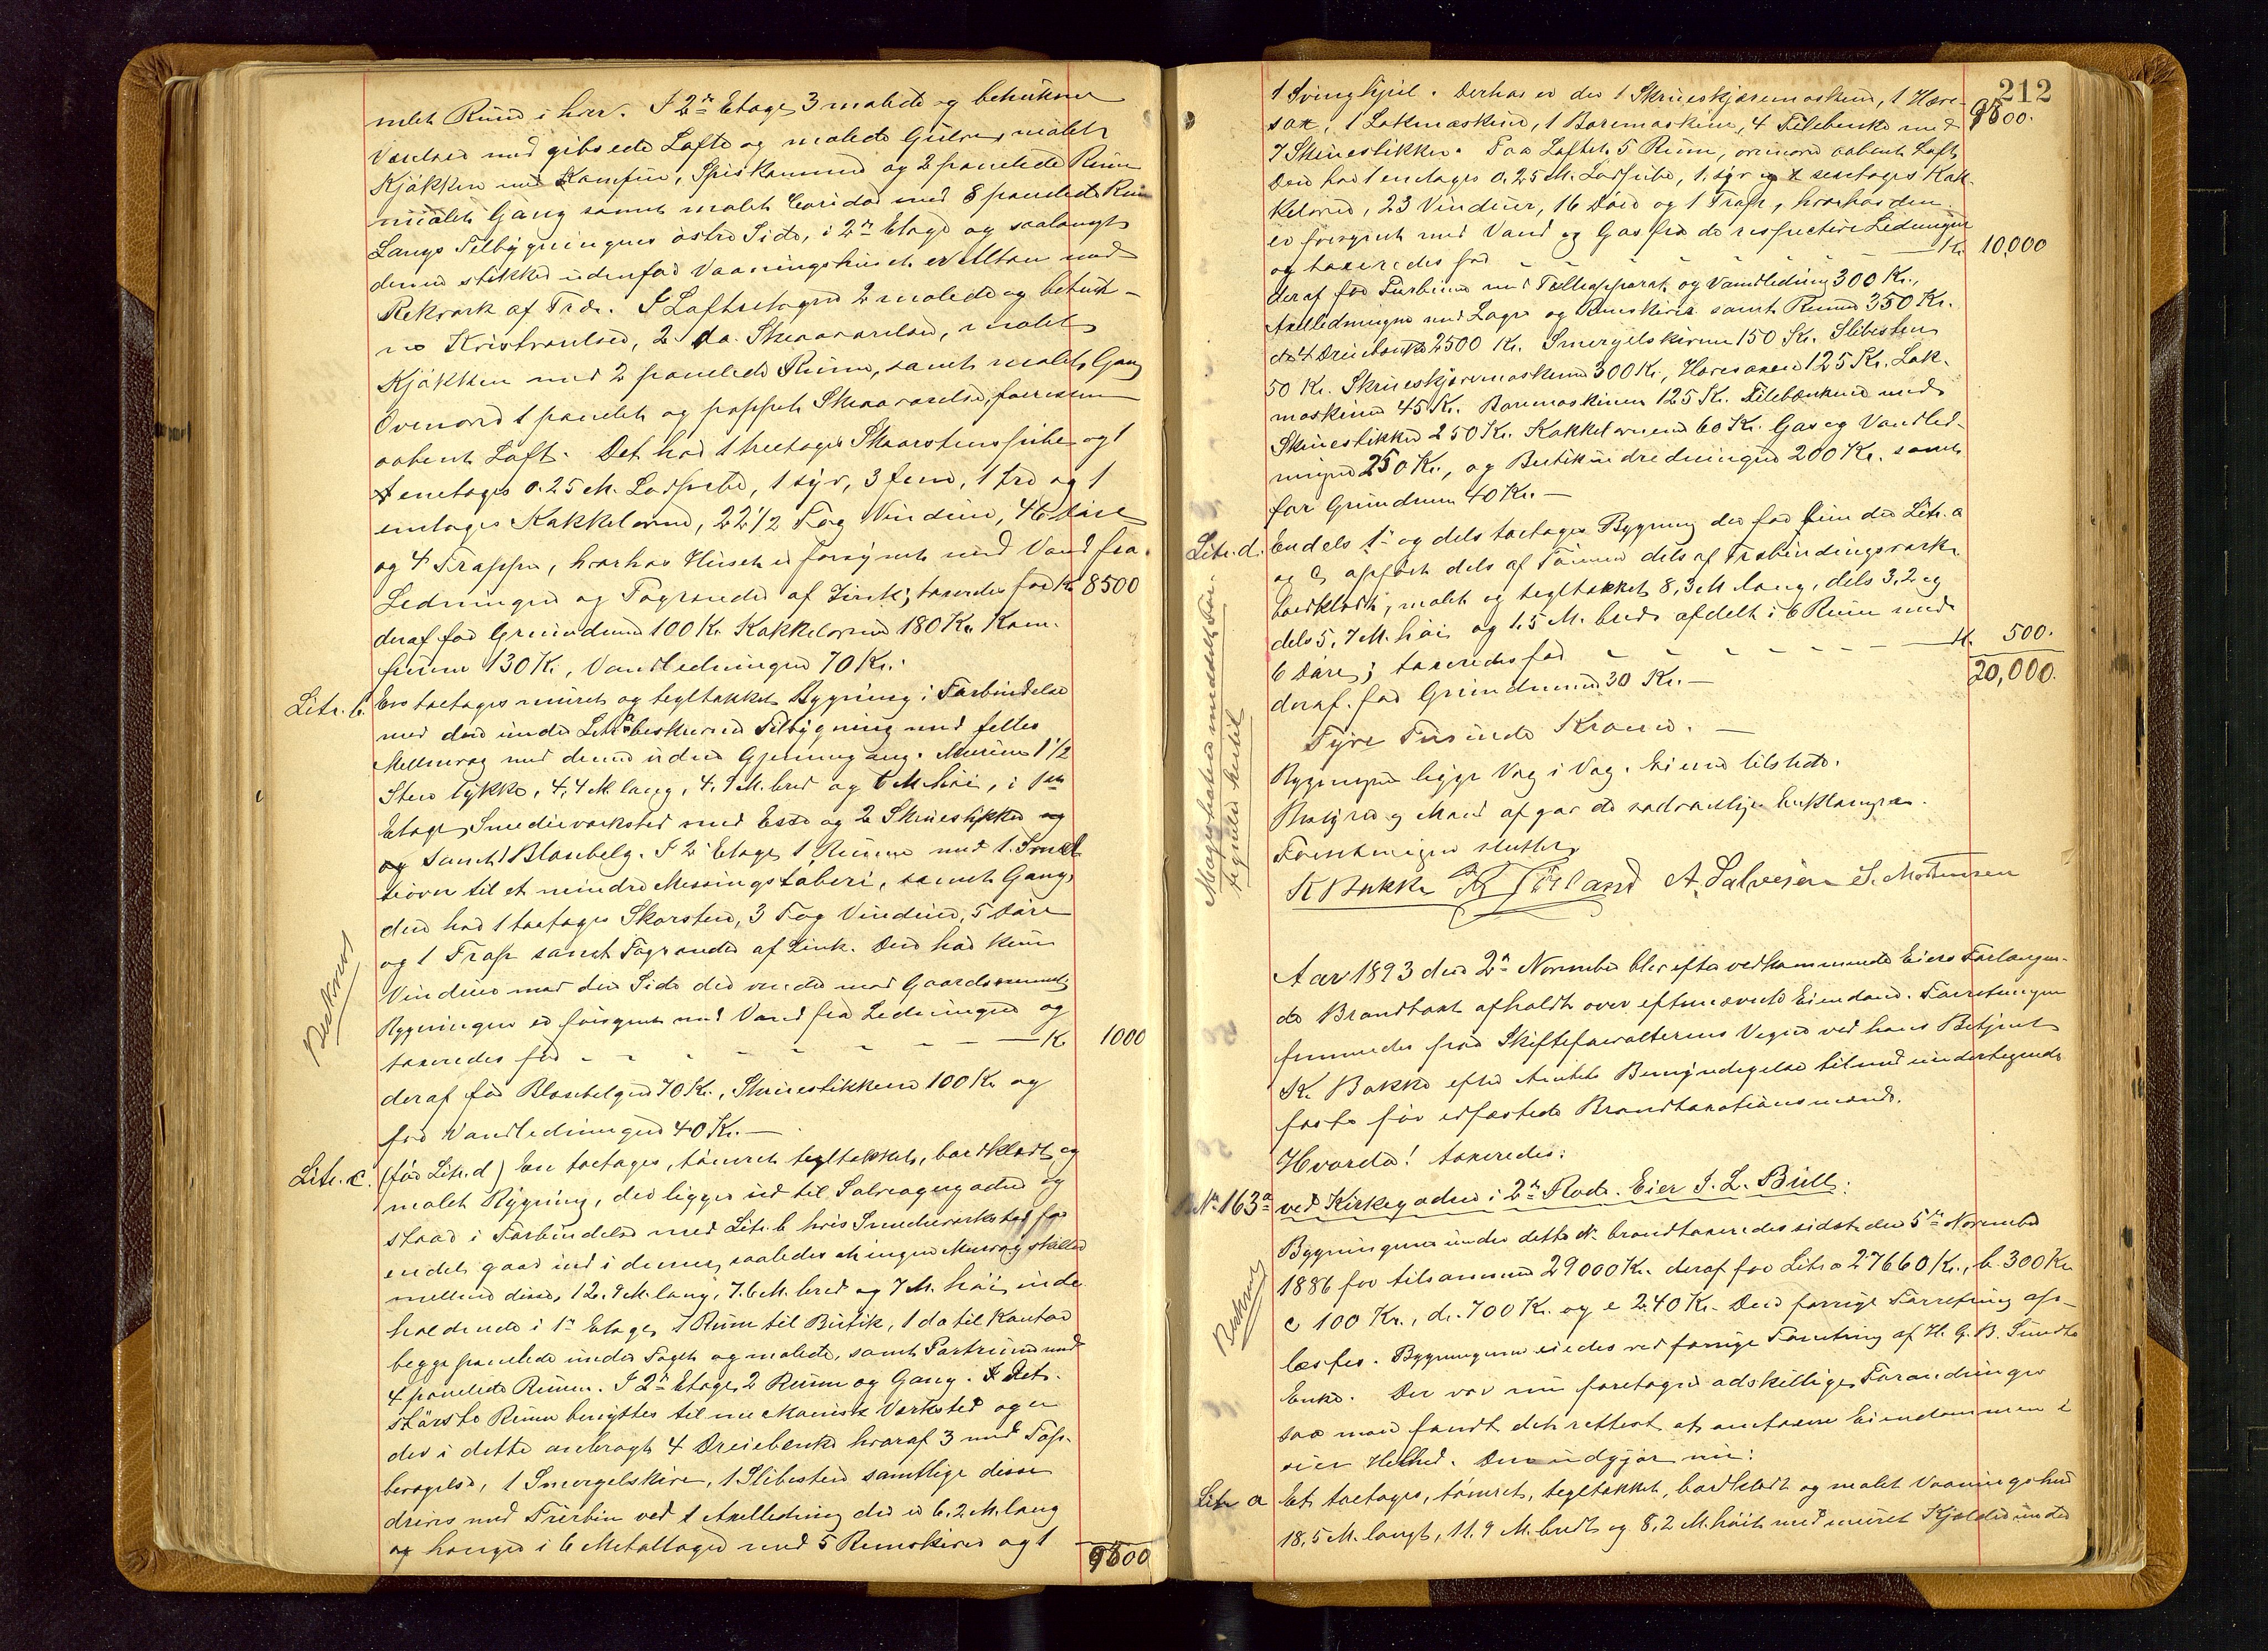 melet Rum i hver. I 2den Etage 3 malede og betrukne
Værelser med gibsede Lofte og malede Gulve, malet
Kjøkken med Komfur, Spiskammer og 2 panelede Rum
malet Gang samt malet Coridor med 8 panelede Rum
Langs Tilbygningens østre Side, i 2den Etage og saalangt
denne stikker udenfor Vaaningshuset er Altan med
Rekværk af Træ. I Loftsetagen 2 malede og betruk-
ne Kvistværelser, 2 do. Skraaværelser, malet
Kjøkken med 2 panelede Rum, samt malet Gang
Ovenover 1 panelet og pappet Skraaværelse, forresten
aabent Loft. Det har 1 treetages Skorstenspibe og 1
enetages 0.25 M. Lodpibe, 1 syv, 3 fem, 1 tre og 1
enetages Kakkelovne, 22 1/2 Fag Vinduer, 46 Døre
og 4 Trapper, hvorhos Huset er forsynet med Vand fra
Ledningen og Tagrender af Zink; taxeredes for Kr 8500
deraf for Grundmur 100 Kr. Kakkelovne 180 Kr. Kom-
furene 130 Kr., Vandledningen 70 Kr.
Litr. b. En toetages muret og tegltækket Bygning i Forbindelse
med den under Litr a beskrevne Tilbygning med fælles
Mellemvæg med denne uden Gjennemgang. Murene 1 1/2
Sten tykke, 4,4 M. lang, 4,9 M. bred og 6 M. høi, i 1ste
Etage Smedieværksted med Esse og 2 Skruestikker og
og samt 1 Blæsebelg. I 2 Etage 1 Rum med 1 Smel-
teovn til et mindre Messingstøberi, samt Gang,
den har 1 toetages Skorsten, 3 Fag Vinduer, 5 Døre
og 1 Trap samt Tagrender af Zink. Den har kun
Vinduer mod den Side der vender mod Gaardsrummet
Beskrevet
Bygningen er forsynet med Vand fra Ledningen og
taxeredes for - - - - - - - - Kr 1000
deraf for Blæsebelgen 70 Kr., Skruestikkerne 100 Kr. og
for Vandledningen 40 Kr. —
Litr. c. (før Litr. d) En toetages, tømret tegltækket, bordklædt og
malet Bygning, der ligger ud til Salvagergaden og
staar i Forbindelse med Litr. b hvis Smedieværksted for
endel gaar ind i denne, saaledes at ingen Murvæg skiller
mellem disse, 12.9 M. lang, 7.6 M. bred og 7 M. høi, inde-
holdende i 1ste Etage, 1 Rum til Butik, 1 do til Kontor
begge panelede under Taget og malede, samt Portrum med
4 panelede Rum. I 2den Etage 2 Rum og Gang. Det
største Rum benyttes til mekanisk Værksted og er
der i dette anbragt 4 Dreiebænke hvoraf 3 med Fod-
bevægelse, 1 Smergelskive, 1 Slibesten samtlige disse
drives med Turbin ved 1 Axelledning der er 6.2 M. lang
og hænger i 6 Metallager med 5 Remskiver og 1
9500
212
1 Svinghjul. Derhos er der 1 Skrueskjæremaskine, 1 Hæve-
9500.
sax, 1 Lokmaskine, 1 Boremaskine, 4 Filebænke med
7 Skruestikker. Paa Loftet 5 Rum, ovenover aabent Loft,
Den har 1 enetages 0.25 M. Lodpibe, 1 syv og 1 sexetages Kak-
kelovne, 23 Vinduer, 16 Døre og 1 Trap, hvorhos den
er forsynet med Vand og Gas fra de respective Ledninger
og taxeredes for - - - - - - Kr. 10,000
deraf for Turbinen med Tælleapparat og Vandledning 300 Kr.,
Axelledningen med Lager og Remskiver samt Remme 350 Kr.
de 4 Dreiebænke 2500 Kr. Smergelskiven 150 Kr. Slibesten
50 Kr. Skrueskjæremaskine 300 Kr., Hævesaxen 125 Kr. Lok-
maskinen 45 Kr. Boremaskinen 125 Kr. Filebænkene med
Skruestikker 250 Kr. Kakkelovnene 60 Kr. Gas og Vandled-
ningen 250 Kr., og Butikindredningen 200 Kr. samt
for Grundmur 40 Kr. —
Litr. d. En dels 1 og dels toetages Bygning der før under Litr. a
og c, opført dels af Tømmer dels af Træbindingsværk,
bordklædt, malet og tegltækket 8,3 M. lang, dels 3,2 og
dels 5,7 M. høi og 1.5 M. bred afdelt i 6 Rum med
6 Døre; taxeredes for - - - - - Kr. 500.
deraf for Grundmur 30 Kr. — 20,000.
Tyve Tusinde Kroner. —
Bygningen ligger Væg i Væg. Eieren tilstede.
Bestyrer og Mænd afgav de sædvanlige Erklæringer.
Forretningen sluttet
K Bakke A. Salvesen S. Mortensen
Aar 1893 den 2den November blev efter vedkommende Eiers Forlangen-
de Brandtaxt afholdt over eftnævnte Eiendom. Forretningen
fremmedes fra Skifteforvalterens Vegne ved hans Betjent
K. Bakke efter Amtets Bemyndigelse tilmed undertegnede
faste før edfæstede Brandtaxationsmænd.
Hvorda! taxeredes:
B.No. 163a ved Kirkegaden i 2den Rode. Eier J. L. Bull.
Bygningerne under dette No. brandtaxeredes sidst den 5te November
1886 for tilsammen 29000 Kr. deraf for Litr a 27660 Kr., b. 300 Kr
Beskrevet
c 100 Kr., d. 700 Kr. og e 240 Kr. Den forrige Forretning op-
læstes. Bygningerne eiedes ved forrige Forretning af H. G. B. Sundts
Enke. Der var nu foretaget adskillige Forandringer
saa man fandt det rettest at omtaxere Eiendommen i
sin Helhed. Den udgjør nu:
Litr a Et toetages, tømret, tegltækket, bordklædt og malet Vaaningshus
18,5 M. langt, 11.9 M. bredt og 8,2 M. høit med muret Kjælder under